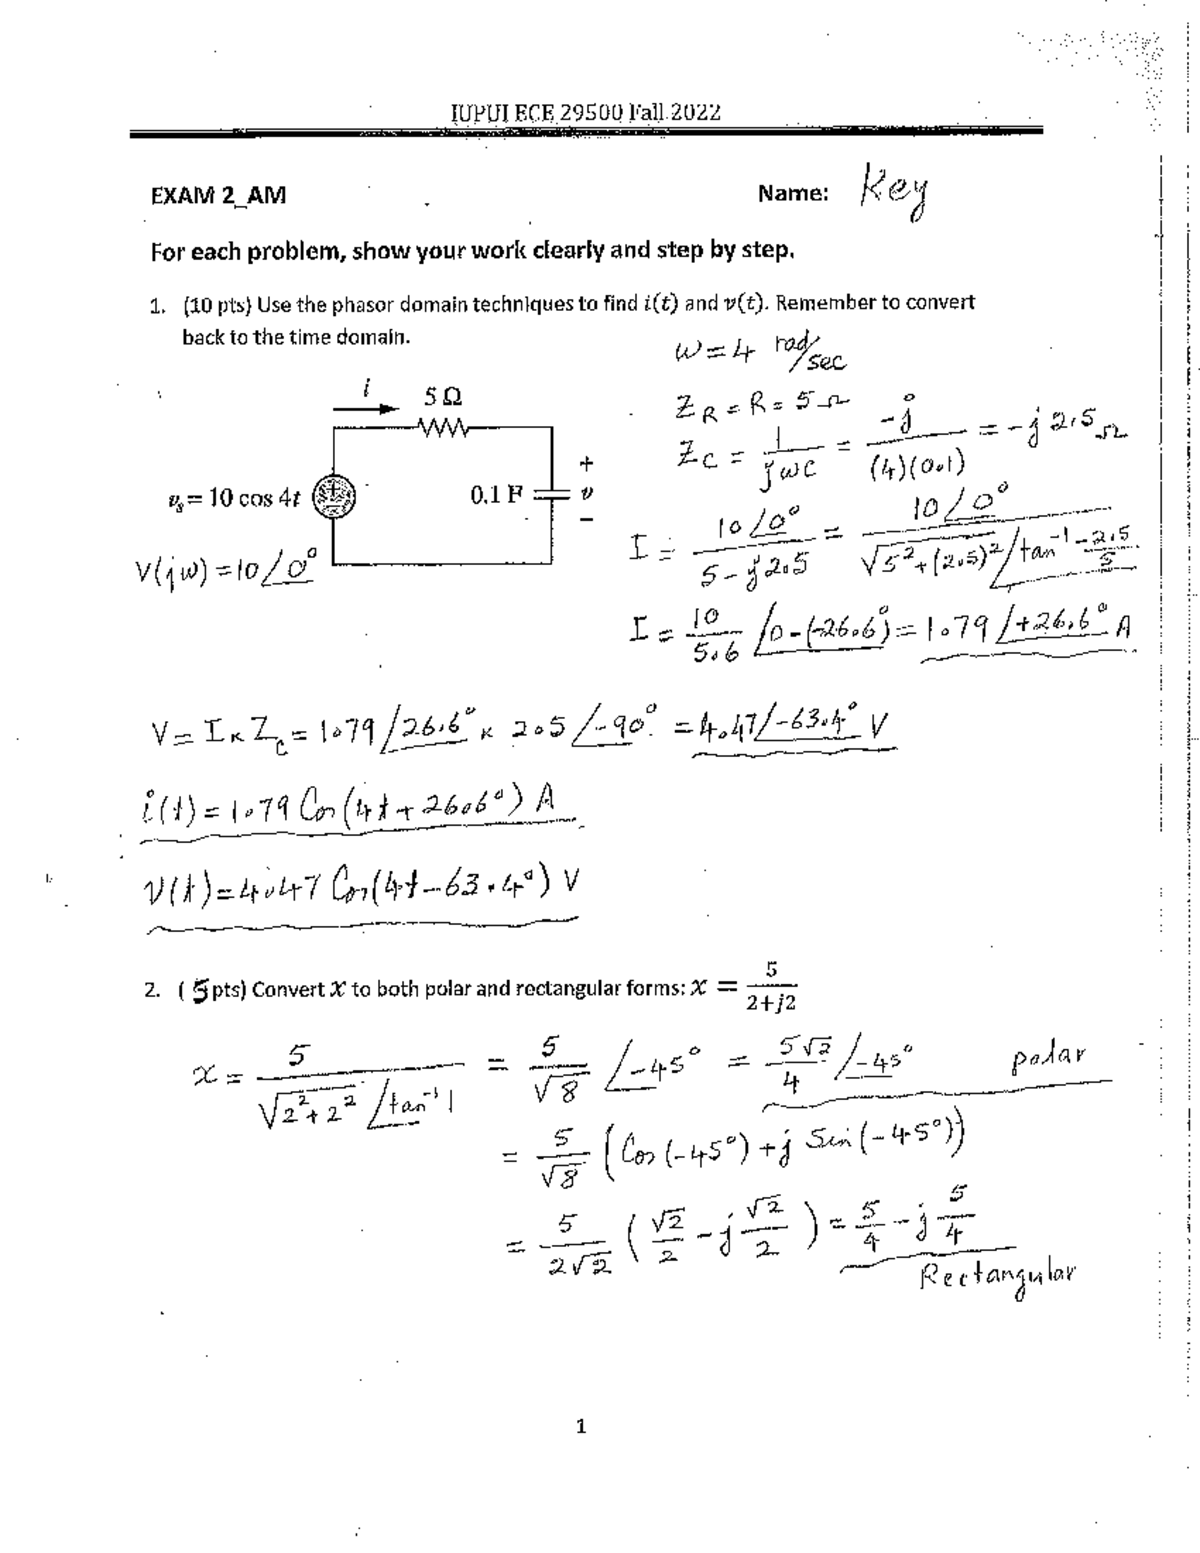 IUPUI ECE 29500 Fall 2022
EXAM 2_AM Name: Key
For each problem, show your work clearly and step by step.
1. (10 pts) Use the phasor domain techniques to find i(t) and v(t). Remember to convert
back to the time domain.
ω = 4 rad/sec
i
5 Ω
Z_R = R = 5 Ω
Z_C = 1/(jωC) = -j/((4)(0.1)) = -j 2.5 Ω
+
v_s = 10 cos 4t
0.1 F
v
−
V(jω) = 10 /0°
I = 10 /0° / (5 - j2.5) = 10 /0° / (√(5² + (2.5)²) /tan⁻¹ -2.5/5)
I = 10/5.6 /0-(-26.6°) = 1.79 /+26.6° A
V = I × Z_C = 1.79 /26.6° × 2.5 /-90° = 4.47 /-63.4° V
i(t) = 1.79 Cos(4t + 26.6°) A
v(t) = 4.47 Cos(4t - 63.4°) V
2. ( 5pts) Convert x to both polar and rectangular forms: x = 5/(2+j2)
x = 5 / (√(2² + 2²) /tan⁻¹ 1) = 5/√8 /-45° = 5√2/4 /-45° polar
= 5/√8 (Cos(-45°) + j Sin(-45°))
= 5/(2√2) (√2/2 - j √2/2) = 5/4 - j 5/4
Rectangular
1